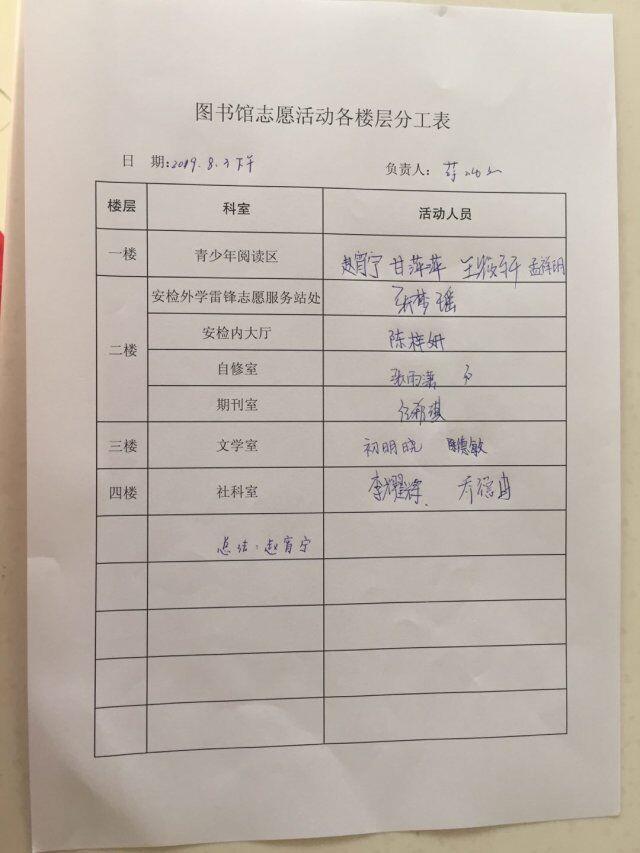 图书馆志愿活动各楼层分工表
日 期:2019.8.3下午 负责人:
楼层 科室 活动人员
一楼 青少年阅读区 赵宵宁 甘萍萍 孟祥玥
二楼
安检外学雷锋志愿服务站处 梦瑶
安检内大厅 陈梓妍
自修室 张雨潇
期刊室
三楼 文学室 初明晓 德敏
四楼 社科室 李耀辉
总结:赵宵宁